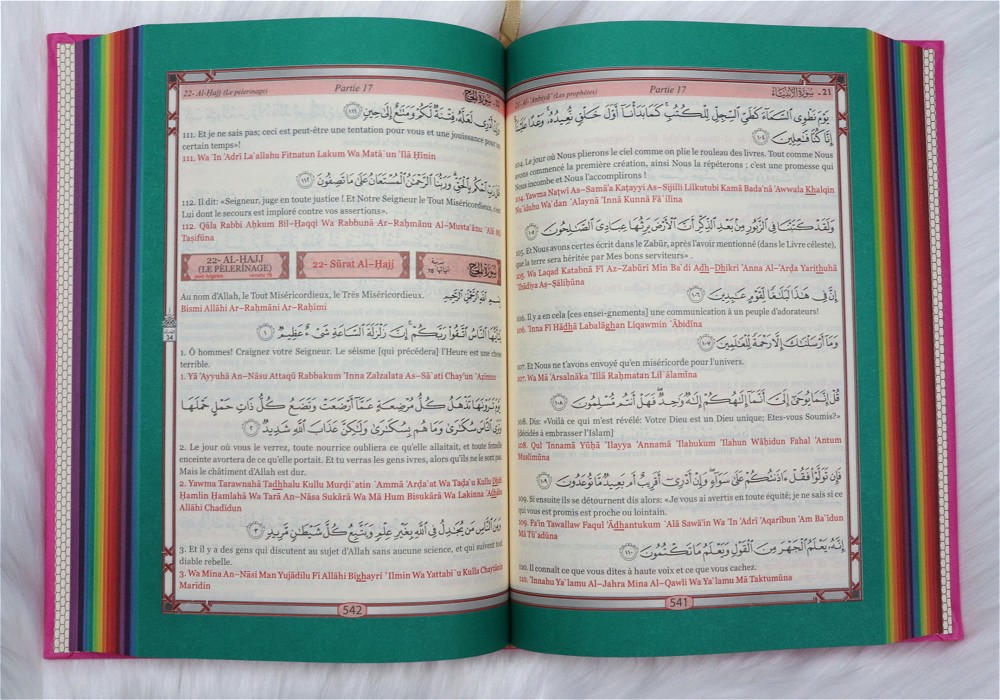 22- Al-Ḥajj (Le pèlerinage)
Partie 17
111. Et je ne sais pas; ceci est peut-être une tentation pour vous et une jouissance pour un
certain temps»!
111. Wa 'In 'Adrī La`allahu Fitnatun Lakum Wa Matā`un 'Ilá Ḥīnin
112. Il dit: «Seigneur, juge en toute justice ! Et Notre Seigneur le Tout Miséricordieux, c'est
Lui dont le secours est imploré contre vos assertions».
112. Qāla Rabbi Aḥkum Bil-Ḥaqqi Wa Rabbunā Ar-Raḥmānu Al-Musta`ānu `Alá Mā
Taṣifūna
22- AL-HAJJ
(LE PÈLERINAGE)
22- Sūrat Al-Ḥajj
سورة الحج
Au nom d'Allah, le Tout Miséricordieux, le Très Miséricordieux.
بسم الله الرحمن الرحيم
Bismi Allāhi Ar-Raḥmāni Ar-Raḥīmi
يَا أَيُّهَا النَّاسُ اتَّقُوا رَبَّكُمْ إِنَّ زَلْزَلَةَ السَّاعَةِ شَيْءٌ عَظِيمٌ ١
1. Ô hommes! Craignez votre Seigneur. Le séisme [qui précédera] l'Heure est une chose
terrible.
1. Yā 'Ayyuhā An-Nāsu Attaqū Rabbakum 'Inna Zalzalata As-Sā`ati Chay'un `Aẓīmun
يَوْمَ تَرَوْنَهَا تَذْهَلُ كُلُّ مُرْضِعَةٍ عَمَّا أَرْضَعَتْ وَتَضَعُ كُلُّ ذَاتِ حَمْلٍ حَمْلَهَا
وَتَرَى النَّاسَ سُكَارَىٰ وَمَا هُم بِسُكَارَىٰ وَلَٰكِنَّ عَذَابَ اللَّهِ شَدِيدٌ ٢
2. Le jour où vous le verrez, toute nourrice oubliera ce qu'elle allaitait, et toute femelle
enceinte avortera de ce qu'elle portait. Et tu verras les gens ivres, alors qu'ils ne le sont pas.
Mais le châtiment d'Allah est dur.
2. Yawma Tarawnahā Tadhhalu Kullu Murḍi`atin `Ammā 'Arḍa`at Wa Taḍa`u Kullu Dhāti
Ḥamlin Ḥamlahā Wa Tará An-Nāsa Sukārá Wa Mā Hum Bisukārá Wa Lakinna `Adhāba
Allāhi Chadīdun
وَمِنَ النَّاسِ مَن يُجَادِلُ فِي اللَّهِ بِغَيْرِ عِلْمٍ وَيَتَّبِعُ كُلَّ شَيْطَانٍ مَّرِيدٍ ٣
3. Et il y a des gens qui discutent au sujet d'Allah sans aucune science, et qui suivent tout
diable rebelle.
3. Wa Mina An-Nāsi Man Yujādilu Fī Allāhi Bighayri `Ilmin Wa Yattabi`u Kulla Chayṭānin
Marīdin
34
542
21- Al-'Anbiyā' (Les prophètes)
Partie 17
21- سورة الأنبياء
يَوْمَ نَطْوِي السَّمَاءَ كَطَيِّ السِّجِلِّ لِلْكُتُبِ كَمَا بَدَأْنَا أَوَّلَ خَلْقٍ نُّعِيدُهُ وَعْدًا عَلَيْنَا
إِنَّا كُنَّا فَاعِلِينَ ١٠٤
104. Le jour où Nous plierons le ciel comme on plie le rouleau des livres. Tout comme Nous
avons commencé la première création, ainsi Nous la répéterons ; c'est une promesse qui
Nous incombe et Nous l'accomplirons !
104. Yawma Naṭwī As-Samā'a Kaṭayyi As-Sijilli Lilkutubi Kamā Bada'nā 'Awwala Khalqin
Nu`īduhu Wa`dan `Alaynā 'Innā Kunnā Fā`ilīna
وَلَقَدْ كَتَبْنَا فِي الزَّبُورِ مِن بَعْدِ الذِّكْرِ أَنَّ الْأَرْضَ يَرِثُهَا عِبَادِيَ الصَّالِحُونَ ١٠٥
105. Et Nous avons certes écrit dans le Zabūr, après l'avoir mentionné (dans le Livre céleste),
que la terre sera héritée par Mes bons serviteurs» .
105. Wa Laqad Katabnā Fī Az-Zabūri Min Ba`di Adh-Dhikri 'Anna Al-'Arḍa Yarithuhā
`Ibādiya Aṣ-Ṣāliḥūna
إِنَّ فِي هَٰذَا لَبَلَاغًا لِّقَوْمٍ عَابِدِينَ ١٠٦
106. Il y a en cela [ces ensei-gnements] une communication à un peuple d'adorateurs!
106. 'Inna Fī Hādhā Labalāghan Liqawmin `Ābidīna
وَمَا أَرْسَلْنَاكَ إِلَّا رَحْمَةً لِّلْعَالَمِينَ ١٠٧
107. Et Nous ne t'avons envoyé qu'en miséricorde pour l'univers.
107. Wa Mā 'Arsalnāka 'Illā Raḥmatan Lil`ālamīna
قُلْ إِنَّمَا يُوحَىٰ إِلَيَّ أَنَّمَا إِلَٰهُكُمْ إِلَٰهٌ وَاحِدٌ فَهَلْ أَنتُم مُّسْلِمُونَ ١٠٨
108. Dis: «Voilà ce qui m'est révélé: Votre Dieu est un Dieu unique; Etes-vous Soumis?»
[décidés à embrasser l'Islam]
108. Qul 'Innamā Yūḥá 'Ilayya 'Annamā 'Ilahukum 'Ilahun Wāḥidun Fahal 'Antum
Muslimūna
فَإِن تَوَلَّوْا فَقُلْ آذَنتُكُمْ عَلَىٰ سَوَاءٍ وَإِنْ أَدْرِي أَقَرِيبٌ أَم بَعِيدٌ مَّا تُوعَدُونَ ١٠٩
109. Si ensuite ils se détournent dis alors: «Je vous ai avertis en toute équité; je ne sais si ce
qui vous est promis est proche ou lointain.
109. Fa'in Tawallaw Faqul 'Ādhantukum `Alá Sawā'in Wa 'In 'Adrī 'Aqarībun 'Am Ba`īdun
Mā Tū`adūna
إِنَّهُ يَعْلَمُ الْجَهْرَ مِنَ الْقَوْلِ وَيَعْلَمُ مَا تَكْتُمُونَ ١١٠
110. Il connaît ce que vous dites à haute voix et ce que vous cachez.
110. 'Innahu Ya`lamu Al-Jahra Mina Al-Qawli Wa Ya`lamu Mā Taktumūna
541